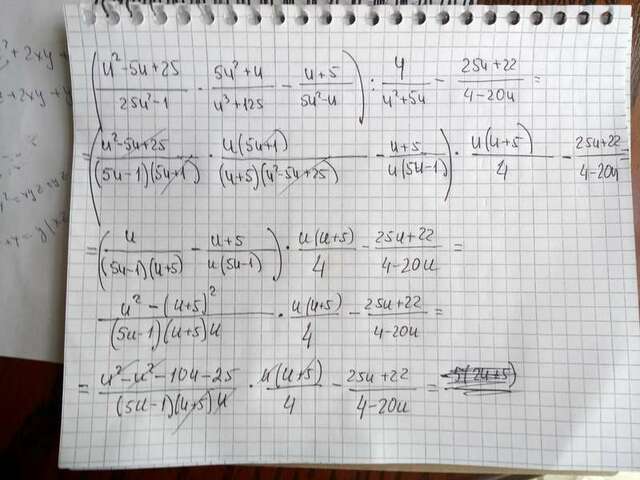 (u²-5u+25 / 25u²-1 · 5u²+u / u³+125 - u+5 / 5u²-u) : 4 / u²+5u - 25u+22 / 4-20u =
= (u²-5u+25 / (5u-1)(5u+1) · u(5u+1) / (u+5)(u²-5u+25) - u+5 / u(5u-1)) · u(u+5) / 4 - 25u+22 / 4-20u =
= (u / (5u-1)(u+5) - u+5 / u(5u-1)) · u(u+5) / 4 - 25u+22 / 4-20u =
u² - (u+5)² / (5u-1)(u+5)u · u(u+5) / 4 - 25u+22 / 4-20u =
= u²-u²-10u-25 / (5u-1)(u+5)u · u(u+5) / 4 - 25u+22 / 4-20u =